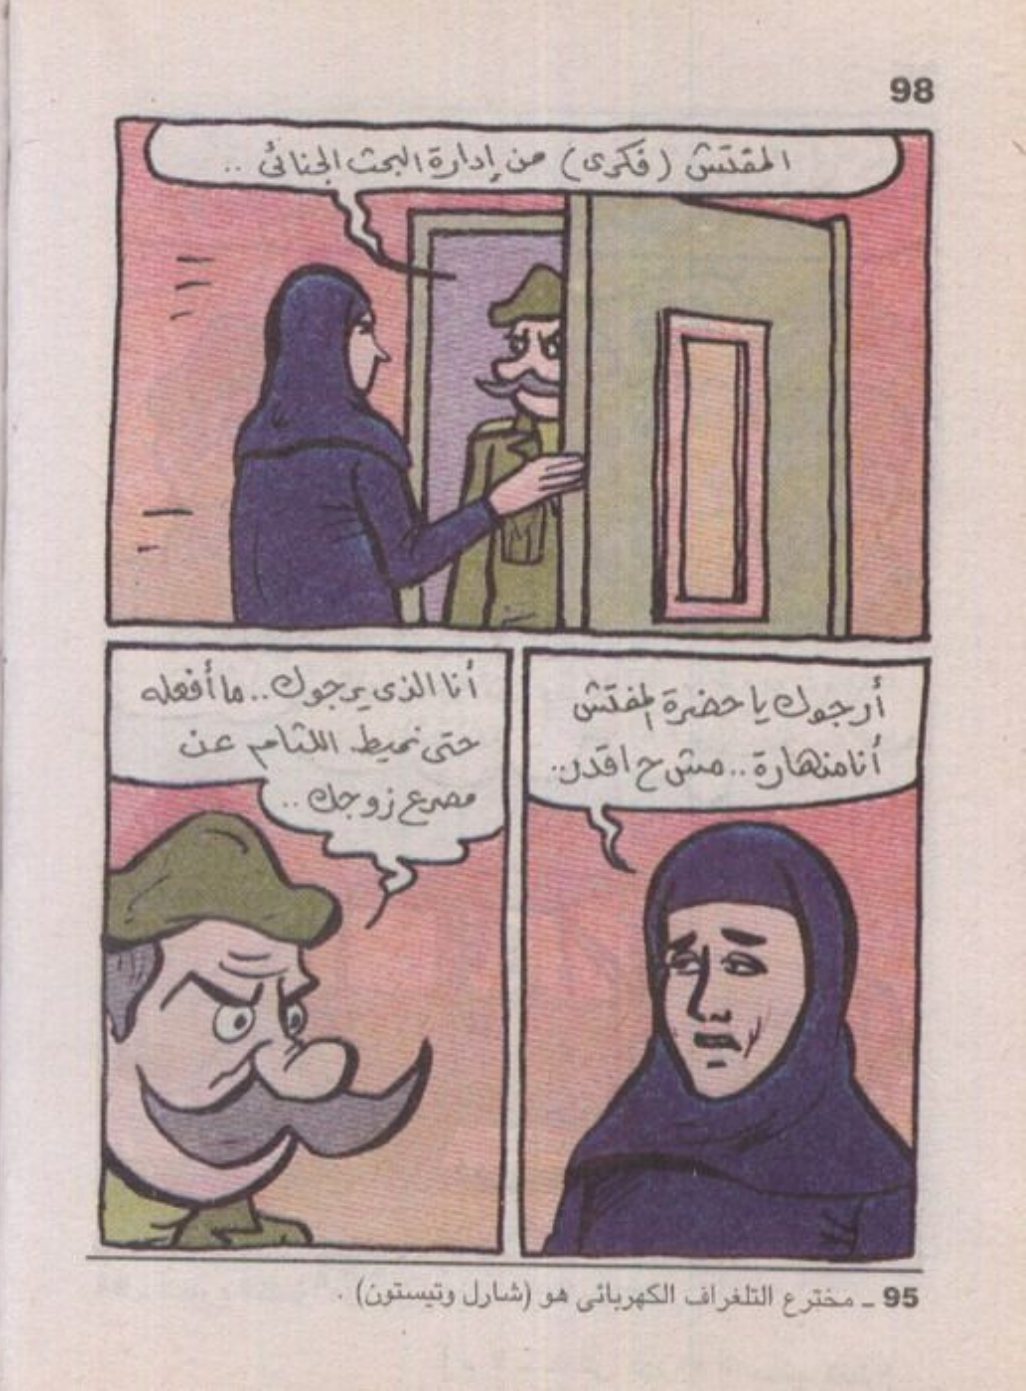 98
المفتش (فكرى) من إدارة البحث الجنائى ..
أرجوك يا حضرة المفتش
أنا منهارة .. مش ح اقدر ..
أنا الذى يرجوك .. ما أفعله
حتى نميط اللثام عن
مصرع زوجك ..
95 ـ مخترع التلغراف الكهربائى هو (شارل وتيستون) .